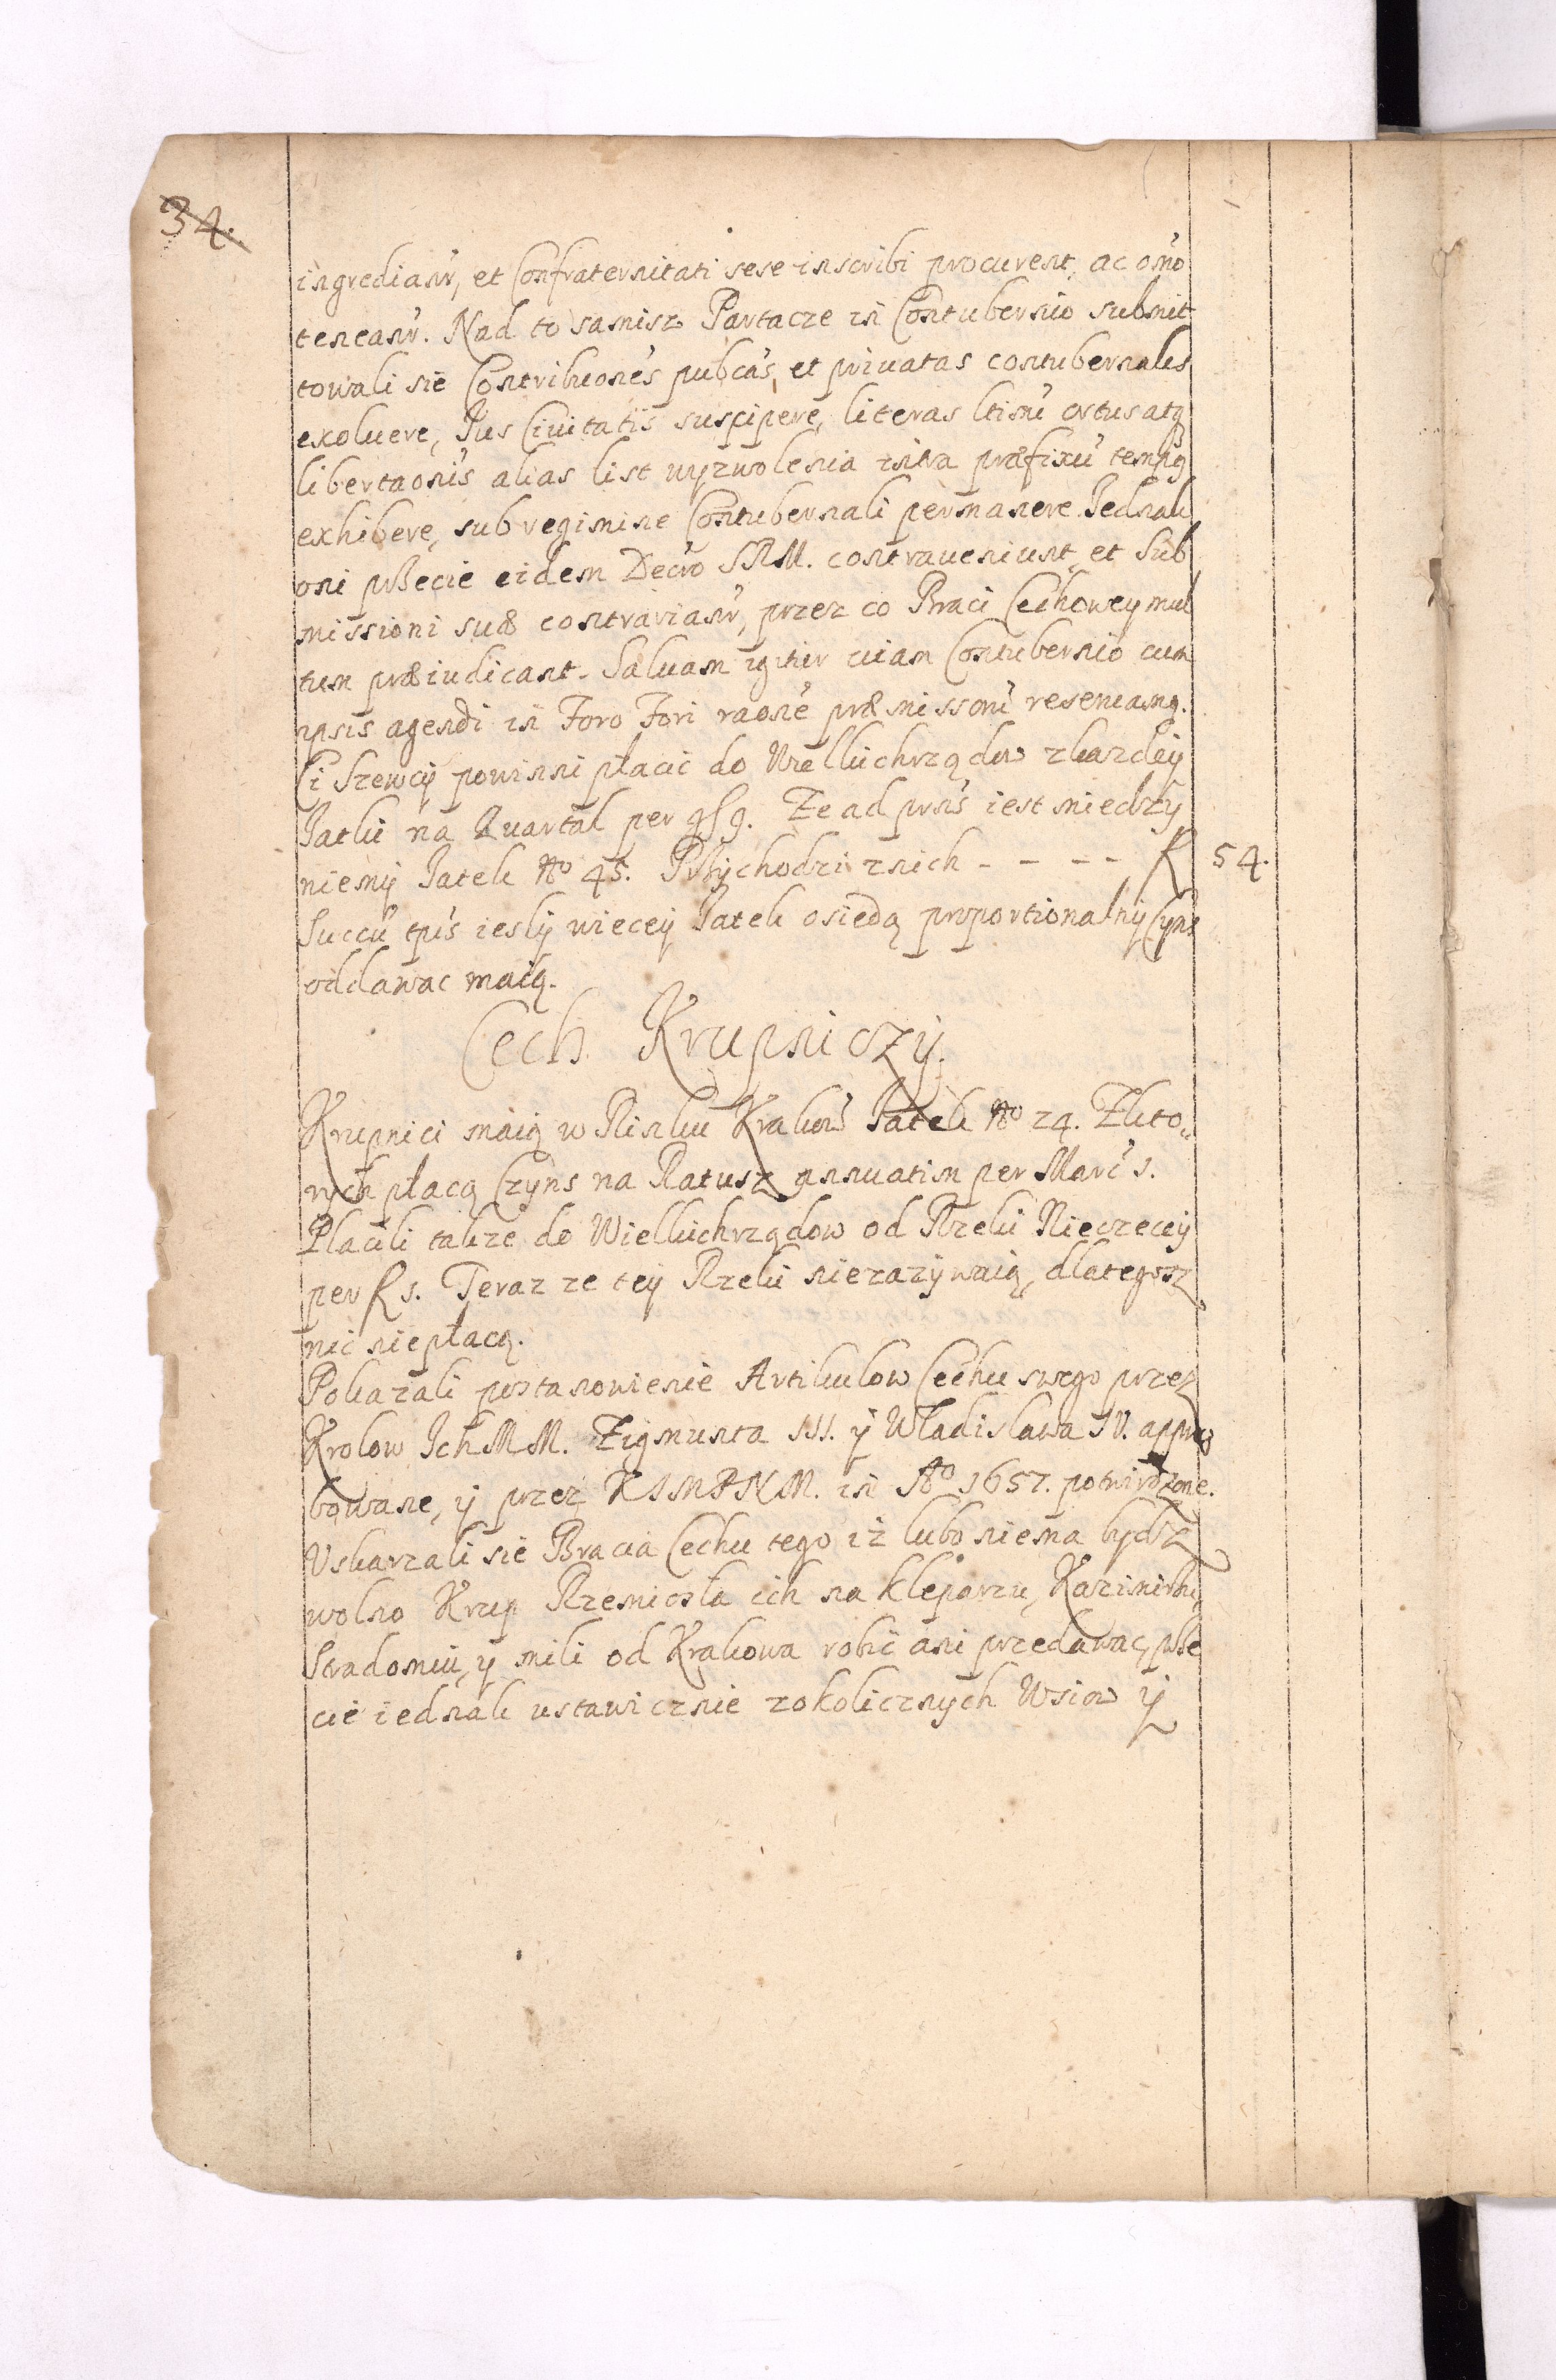 34.
ingredianr̃, et Confraternitati sese inscribi procurent, ac om̃o
teneanr̃. Nad to samisz Partacze in Contubernio submit
towali sie Contribuones pubcas, et privatas contubernales
exoluere, Jus Ciuitatis suscipere, literas ltimũ ortus atq
libertaonis alias list wyzwolenia intra præfixũ tempq
exhibere, sub regimine Contubernali permanere. Jednak
oni pßecie eidem Decro SRM. contraueniunt, et Sub
missioni suæ contrarianr̃, przez co Braci Cechowey mul
tum præiudicant. Saluam igitur uiam Contubernio cum
ipsis agendi in Foro Fori raone præmissorũ reseruamq.
Ci Szewcy powinni płacic do Wielkichrządow z kazdey
Jatki na Quartal per gr 9. Ze ad prns iest miedzy
niemy Jatek No 45. Przychodzi znich - - - - f 54.
Succu tpis iesly wiecey Jatek osiedą proportionalny Czyns
oddawac maią.
Cech Krupniczy.
Krupnici maią w Rinku Krakow Jatek No 24. Zkto„
rych płacą Czyns na Ratusz annuatim per Marc 1.
Placili takze do Wielkichrządow od Rzeki Niecrecey
per f 1. Teraz ze tey Rzeki niezazywaią, dlategosz
nic niepłacą.
Pokazali postanowienie Artikulow Cechu swego przez
Krolow Ich MM. Zigmunta III. y Władislawa IV. appro
bowane, y przez KJMPNM. in Ao 1657. potwirdzone.
Uskarzali sie Bracia Cechu tego iż lubo niema bydz
wolno Krup Rzemiosła ich na Kleparzu, Kazimirzu,
Stradomiu, y mili od Krakowa robic ani przedawac, pße
cie iednak ustawicznie zokolicznych Wsiow y